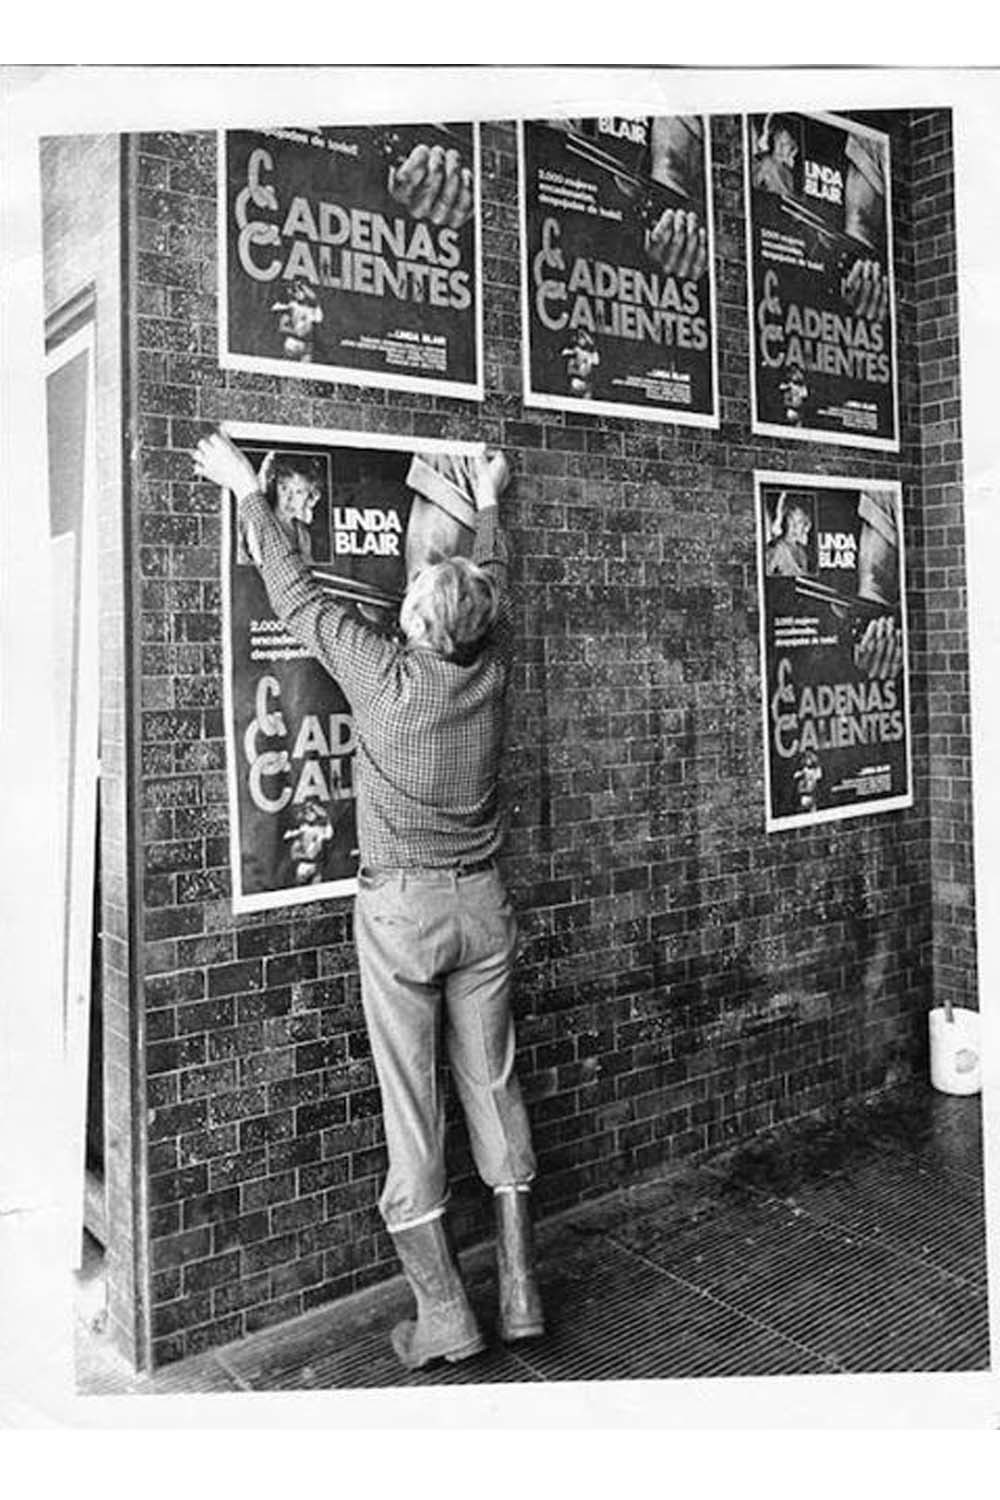 despojadas de todo!!
CADENAS
CALIENTES
LINDA BLAIR
BLAIR
2.000 mujeres
encadenadas,
despojadas de todo!!
CADENAS
CALIENTES
LINDA BLAIR
LINDA
BLAIR
2.000 mujeres
encadenadas,
despojadas de todo!!
CADENAS
CALIENTES
LINDA BLAIR
LINDA
BLAIR
2.000
encade
despojada
CAD
CAL
LINDA
BLAIR
2.000 mujeres
encadenadas,
despojadas de todo!!
CADENAS
CALIENTES
LINDA BLAIR